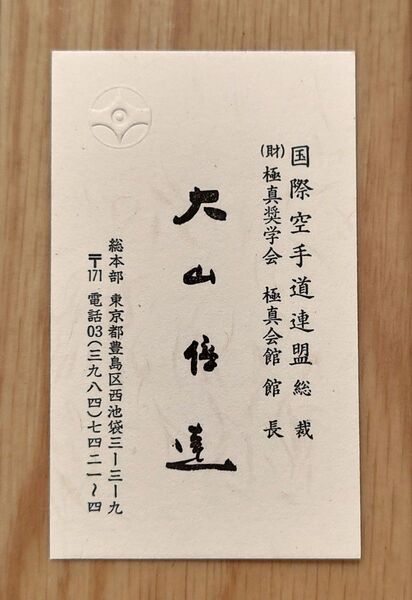 国際空手道連盟 総裁
(財)極真奨学会 極真会館 館長
大山倍達
総本部 東京都豊島区西池袋三ー三ー九
〒171 電話03(三九八四)七四二一〜四